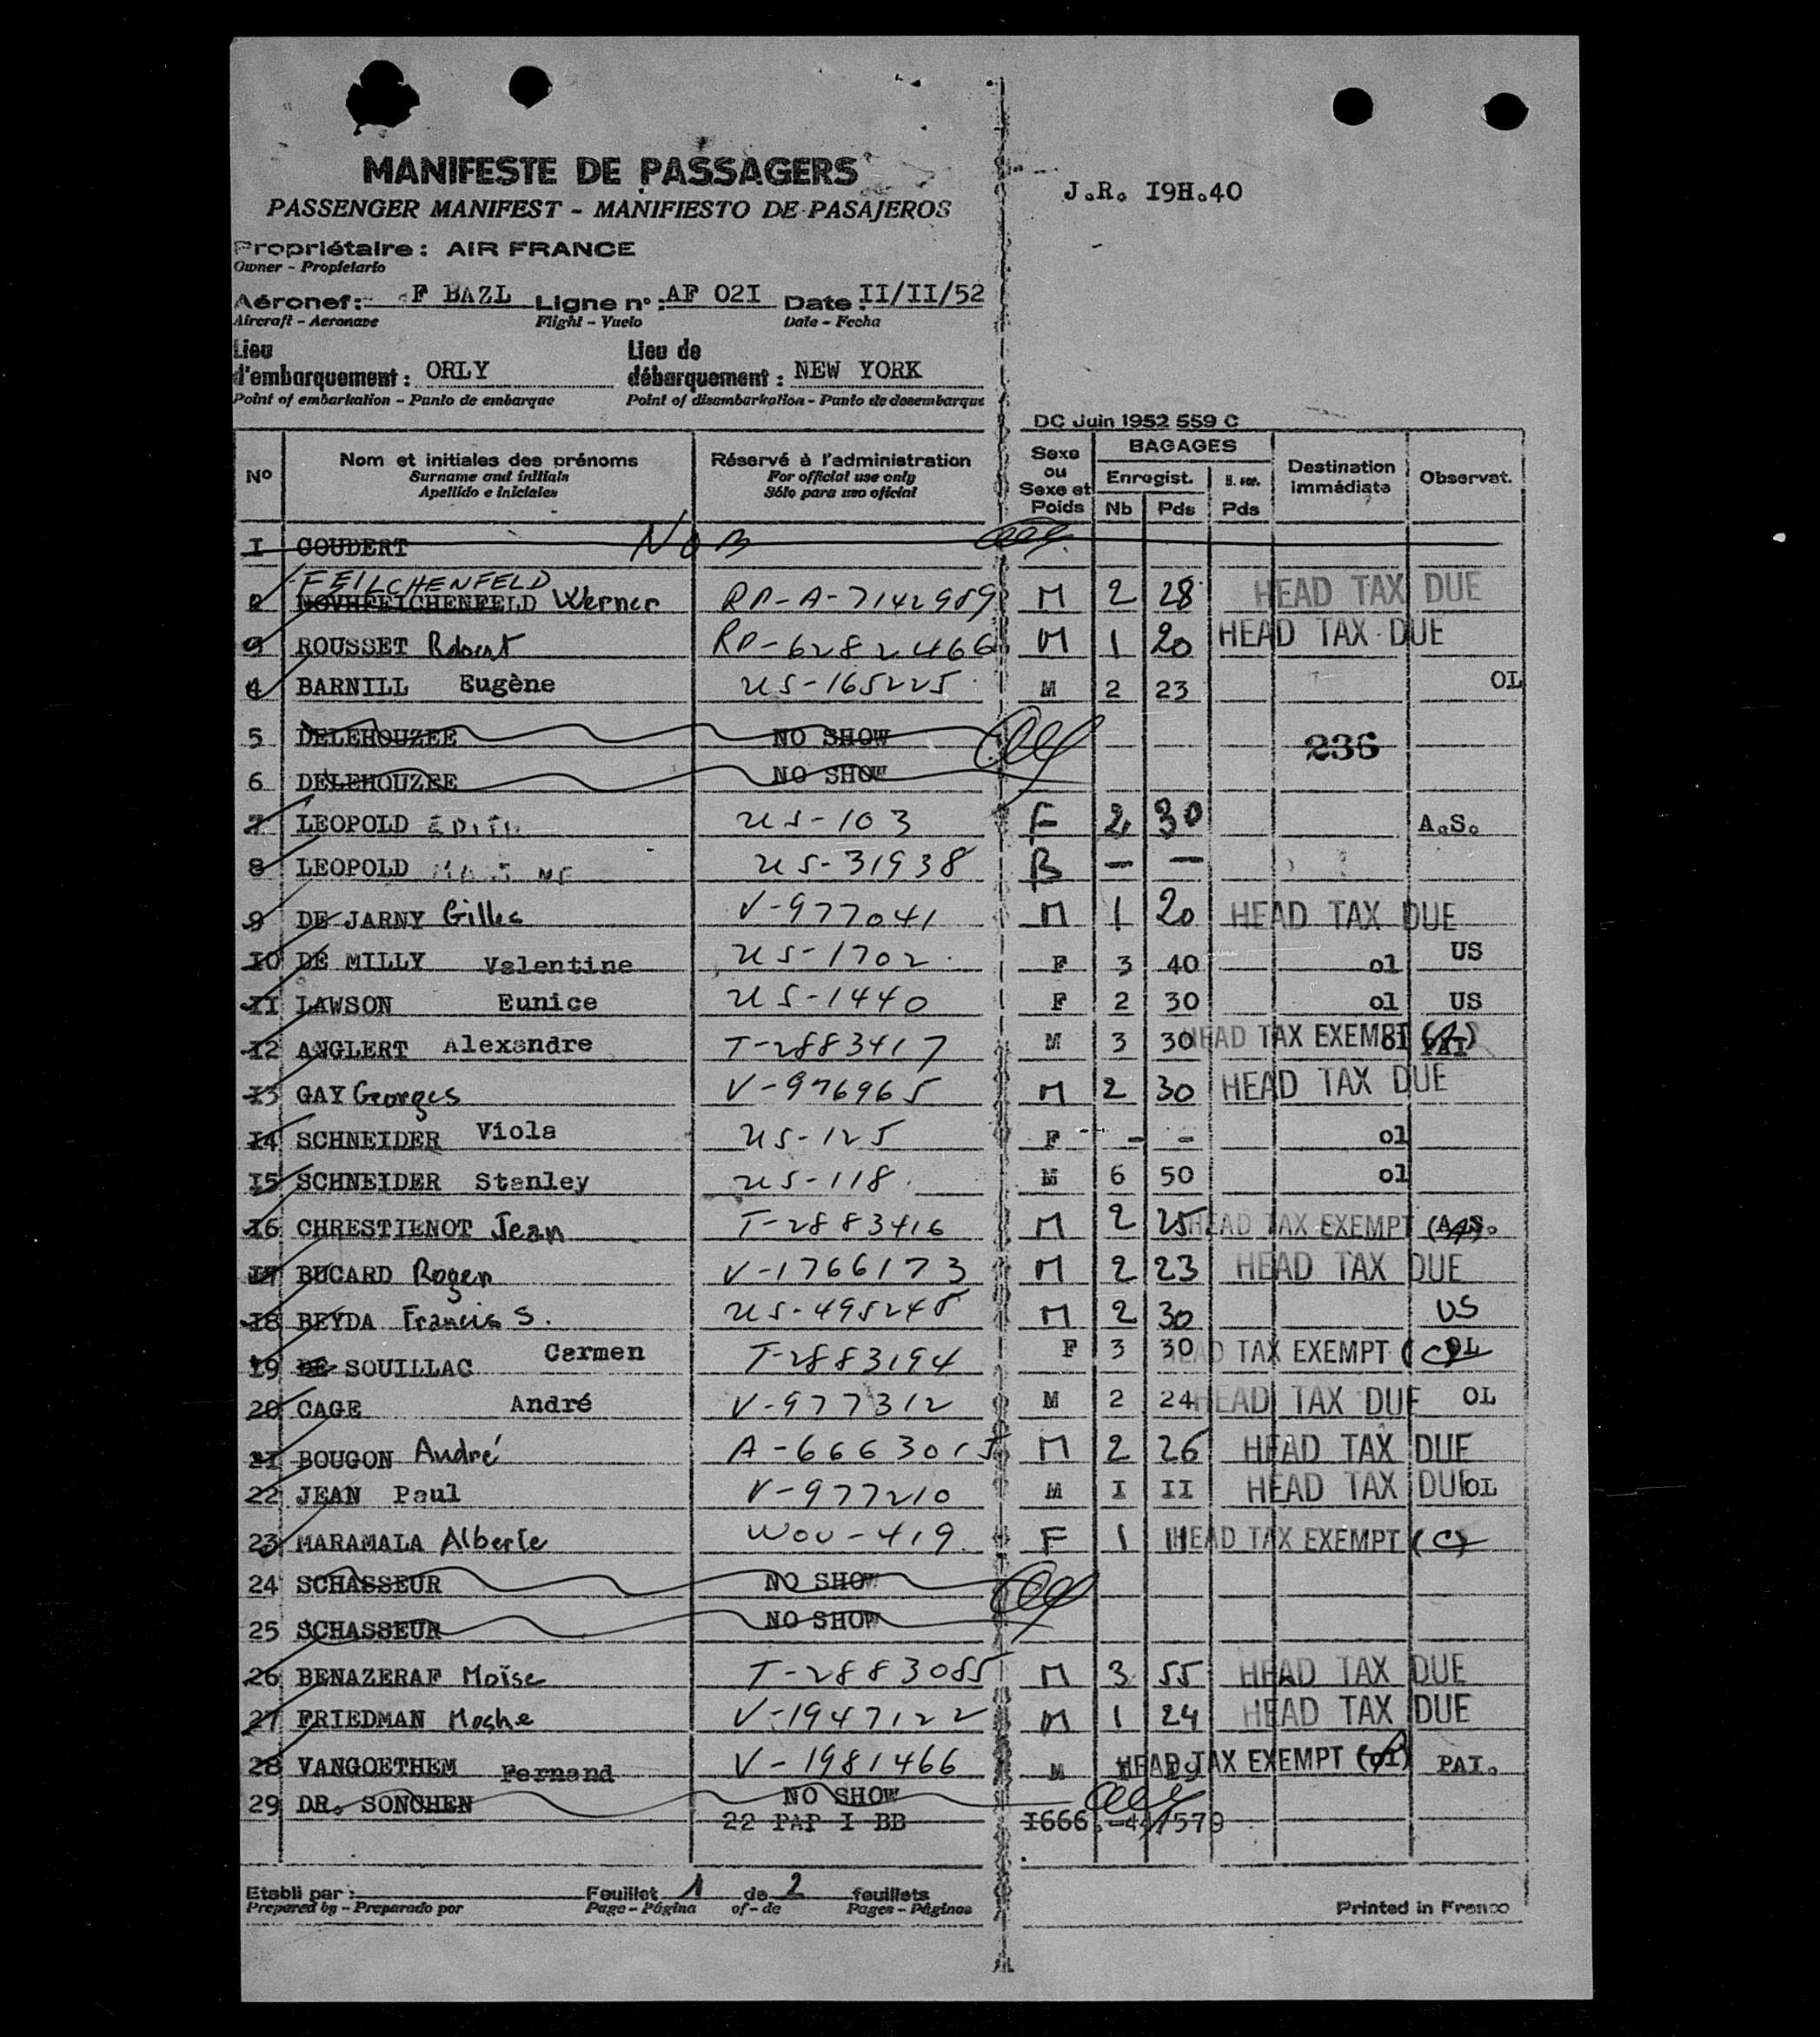 MANIFESTE DE PASSAGERS
PASSENGER MANIFEST - MANIFIESTO DE PASAJEROS
J.R. I9H.40
Propriétaire : AIR FRANCE
Owner - Propietario
Aéronef : F BAZL Ligne n° : AF 02I Date : II/II/52
Aircraft - Aeronave Flight - Vuelo Date - Fecha
Lieu d'embarquement : ORLY Lieu de débarquement : NEW YORK
Point of embarkation - Punto de embarque Point of disembarkation - Punto de desembarque
DC Juin 1952 559 C
N° Nom et initiales des prénoms Réservé à l'administration Sexe ou Sexe et Poids BAGAGES Destination immédiate Observat.
Surname and initials For official use only Enregist.
Apellido e iniciales Sólo para uso oficial Nb Pds Pds
I COUDERT
2 FEILCHENFELD Werner RP-A-7142989 M 2 28 HEAD TAX DUE
3 ROUSSET Robert RP-6282466 M 1 20 HEAD TAX DUE
4 BARNILL Eugène US-165225 M 2 23 OL
5 DELEHOUZEE NO SHOW 236
6 DELEHOUZEE NO SHOW
7 LEOPOLD EDITH US-103 F 2 30 A.S.
8 LEOPOLD US-31938 B - -
9 DE JARNY Gilles V-977041 M 1 20 HEAD TAX DUE
IO DE MILLY Valentine US-1702 F 3 40 ol US
II LAWSON Eunice US-1440 F 2 30 ol US
I2 ANGLERT Alexandre T-2883417 M 3 30 HEAD TAX EXEMPT ol PAI
I3 GAY Georges V-976965 M 2 30 HEAD TAX DUE
I4 SCHNEIDER Viola US-125 F - - ol
I5 SCHNEIDER Stanley US-118 M 6 50 ol
I6 CHRESTIENOT Jean T-2883416 M 2 25 HEAD TAX EXEMPT A.S.
I7 BUCARD Roger V-1766173 M 2 23 HEAD TAX DUE
I8 BEYDA Francis S. US-495248 M 2 30 US
I9 DE SOUILLAC Carmen T-2883194 F 3 30 HEAD TAX EXEMPT (C) OL
20 CAGE André V-977312 M 2 24 HEAD TAX DUE OL
2I BOUGON André A-6663015 M 2 26 HEAD TAX DUE
22 JEAN Paul V-977210 M I II HEAD TAX DUE OL
23 MARAMALA Alberte WOU-419 F 1 11 HEAD TAX EXEMPT (C)
24 SCHASSEUR NO SHOW
25 SCHASSEUR NO SHOW
26 BENAZERAF Moïse T-2883085 M 3 55 HEAD TAX DUE
27 FRIEDMAN Moshe V-1947122 M 1 24 HEAD TAX DUE
28 VANGOETHEM Fernand V-1981466 M HEAD TAX EXEMPT PAI.
29 DR. SONCHEN NO SHOW
22 PAP I BB I666.-44/579
Etabli par : Feuillet 1 de 2 feuillets
Prepared by - Preparado por Page - Página of - de Pages - Páginas
Printed in France